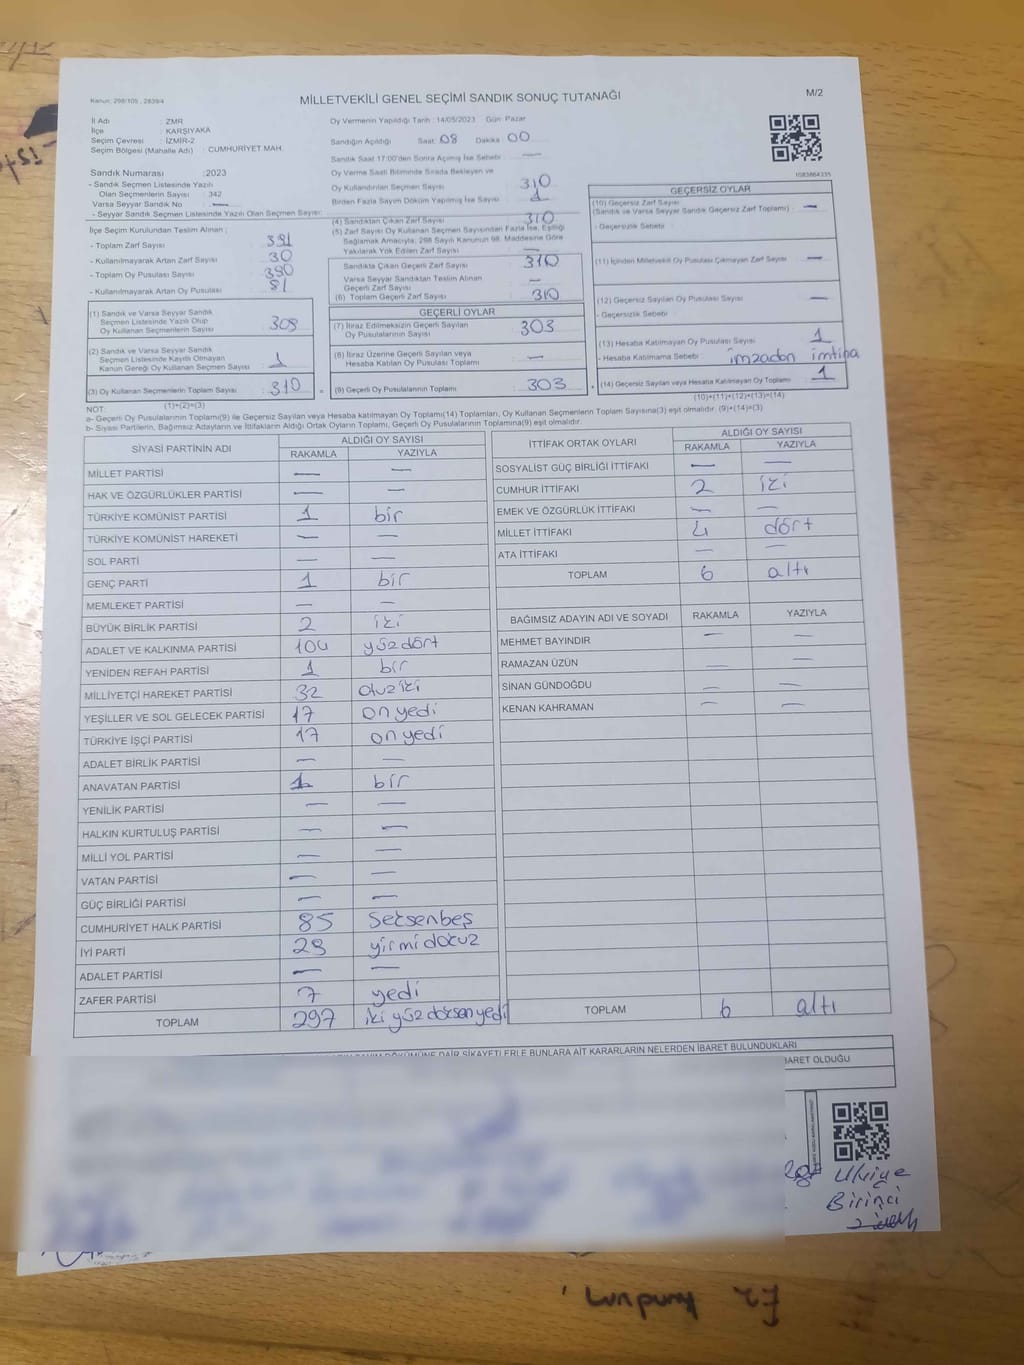 Kanun: 298/105 , 2839/4
MİLLETVEKİLİ GENEL SEÇİMİ SANDIK SONUÇ TUTANAĞI
M/2
İl Adı : ZMR
İlçe : KARŞIYAKA
Seçim Çevresi : İZMİR-2
Seçim Bölgesi (Mahalle Adı) : CUMHURİYET MAH.
Oy Vermenin Yapıldığı Tarih : 14/05/2023 Gün: Pazar
Sandığın Açıldığı Saat: 08 Dakika: 00
Sandık Saat 17:00'den Sonra Açılmış İse Sebebi : —
Oy Verme Saati Bitiminde Sırada Bekleyen ve
Oy Kullandırılan Seçmen Sayısı 310
Birden Fazla Sayım Döküm Yapılmış İse Sayısı : 1
1083664335
Sandık Numarası :2023
- Sandık Seçmen Listesinde Yazılı
Olan Seçmenlerin Sayısı : 342
Varsa Seyyar Sandık No : —
- Seyyar Sandık Seçmen Listesinde Yazılı Olan Seçmen Sayısı:
İlçe Seçim Kurulundan Teslim Alınan ;
- Toplam Zarf Sayısı : 391
- Kullanılmayarak Artan Zarf Sayısı : 30
- Toplam Oy Pusulası Sayısı : 390
- Kullanılmayarak Artan Oy Pusulası : 81
(1) Sandık ve Varsa Seyyar Sandık
Seçmen Listesinde Yazılı Olup
Oy Kullanan Seçmenlerin Sayısı : 308
(2) Sandık ve Varsa Seyyar Sandık
Seçmen Listesinde Kayıtlı Olmayan
Kanun Gereği Oy Kullanan Seçmen Sayısı : 1
(3) Oy Kullanan Seçmenlerin Toplam Sayısı : 310
(1)+(2)=(3)
(4) Sandıktan Çıkan Zarf Sayısı : 310
(5) Zarf Sayısı Oy Kullanan Seçmen Sayısından Fazla İse, Eşitliği
Sağlamak Amacıyla, 298 Sayılı Kanunun 98. Maddesine Göre
Yakılarak Yok Edilen Zarf Sayısı : —
Sandıkta Çıkan Geçerli Zarf Sayısı : 310
Varsa Seyyar Sandıktan Teslim Alınan
Geçerli Zarf Sayısı : —
(6) Toplam Geçerli Zarf Sayısı : 310
GEÇERLİ OYLAR
(7) İtiraz Edilmeksizin Geçerli Sayılan
Oy Pusulalarının Sayısı : 303
(8) İtiraz Üzerine Geçerli Sayılan veya
Hesaba Katılan Oy Pusulası Toplamı : —
= (9) Geçerli Oy Pusulalarının Toplamı : 303
GEÇERSİZ OYLAR
(10) Geçersiz Zarf Sayısı
(Sandık ve Varsa Seyyar Sandık Geçersiz Zarf Toplamı) : —
- Geçersizlik Sebebi :
(11) İçinden Milletvekili Oy Pusulası Çıkmayan Zarf Sayısı : —
(12) Geçersiz Sayılan Oy Pusulası Sayısı : —
- Geçersizlik Sebebi :
(13) Hesaba Katılmayan Oy Pusulası Sayısı : 1
- Hesaba Katılmama Sebebi : imzadan imtina
+ (14) Geçersiz Sayılan veya Hesaba Katılmayan Oy Toplamı : 1
(10)+(11)+(12)+(13)=(14)
NOT:
a- Geçerli Oy Pusulalarının Toplamı(9) ile Geçersiz Sayılan veya Hesaba katılmayan Oy Toplamı(14) Toplamları, Oy Kullanan Seçmenlerin Toplam Sayısına(3) eşit olmalıdır. (9)+(14)=(3)
b- Siyasi Partilerin, Bağımsız Adayların ve İttifakların Aldığı Ortak Oyların Toplamı, Geçerli Oy Pusulalarının Toplamına(9) eşit olmalıdır.
SİYASİ PARTİNİN ADI ALDIĞI OY SAYISI
RAKAMLA YAZIYLA
MİLLET PARTİSİ — —
HAK VE ÖZGÜRLÜKLER PARTİSİ — —
TÜRKİYE KOMÜNİST PARTİSİ 1 bir
TÜRKİYE KOMÜNİST HAREKETİ — —
SOL PARTİ — —
GENÇ PARTİ 1 bir
MEMLEKET PARTİSİ — —
BÜYÜK BİRLİK PARTİSİ 2 iki
ADALET VE KALKINMA PARTİSİ 104 yüzdört
YENİDEN REFAH PARTİSİ 1 bir
MİLLİYETÇİ HAREKET PARTİSİ 32 otuziki
YEŞİLLER VE SOL GELECEK PARTİSİ 17 onyedi
TÜRKİYE İŞÇİ PARTİSİ 17 onyedi
ADALET BİRLİK PARTİSİ — —
ANAVATAN PARTİSİ 1 bir
YENİLİK PARTİSİ — —
HALKIN KURTULUŞ PARTİSİ — —
MİLLİ YOL PARTİSİ — —
VATAN PARTİSİ — —
GÜÇ BİRLİĞİ PARTİSİ — —
CUMHURİYET HALK PARTİSİ 85 seksenbeş
İYİ PARTİ 29 yirmidokuz
ADALET PARTİSİ — —
ZAFER PARTİSİ 7 yedi
TOPLAM 297 iki yüzdoksanyedi
İTTİFAK ORTAK OYLARI ALDIĞI OY SAYISI
RAKAMLA YAZIYLA
SOSYALİST GÜÇ BİRLİĞİ İTTİFAKI — —
CUMHUR İTTİFAKI 2 iki
EMEK VE ÖZGÜRLÜK İTTİFAKI — —
MİLLET İTTİFAKI 4 dört
ATA İTTİFAKI — —
TOPLAM 6 altı
BAĞIMSIZ ADAYIN ADI VE SOYADI RAKAMLA YAZIYLA
MEHMET BAYINDIR — —
RAMAZAN ÜZÜN — —
SİNAN GÜNDOĞDU — —
KENAN KAHRAMAN — —
TOPLAM 6 altı
DÖKÜMÜNE DAİR ŞİKAYETLERLE BUNLARA AİT KARARLARIN NELERDEN İBARET BULUNDUKLARI
BARET OLDUĞU
Ulviye
Birinci